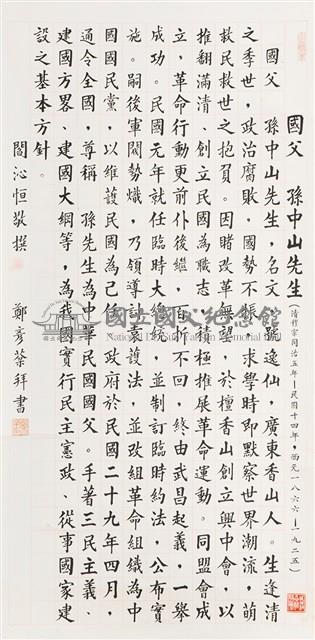 國父　孫中山先生(清穆宗同治五年—民國十四年，西元一八六六—一九二五)
國父　孫中山先生，名文，號逸仙，廣東香山人。生逢清
之季世，政治腐敗，國勢不張。求學時即默察世界潮流，萌
救民救世之抱負。因睹改革無望，於檀香山創立興中會，以
推翻滿清、創立民國為職志，積極推展革命運動。同盟會成
立，革命行動更前仆後繼，百折不回，終由武昌起義，一舉
成功。民國元年就任臨時大總統，並制訂臨時約法，公布實
施。嗣後軍閥勢熾，乃領導討袁護法，並改組革命組織為中
國國民黨，以維護民國為己任。政府於民國二十九年四月，
通令全國，尊稱　孫先生為中華民國國父。手著三民主義、
建國方略、建國大綱等，為我國實行民主憲政、從事國家建
設之基本方針。
閻沁恒敬撰　鄭彥棻拜書
國立國父紀念館
National Dr. Sun Yat-sen Memorial Hall